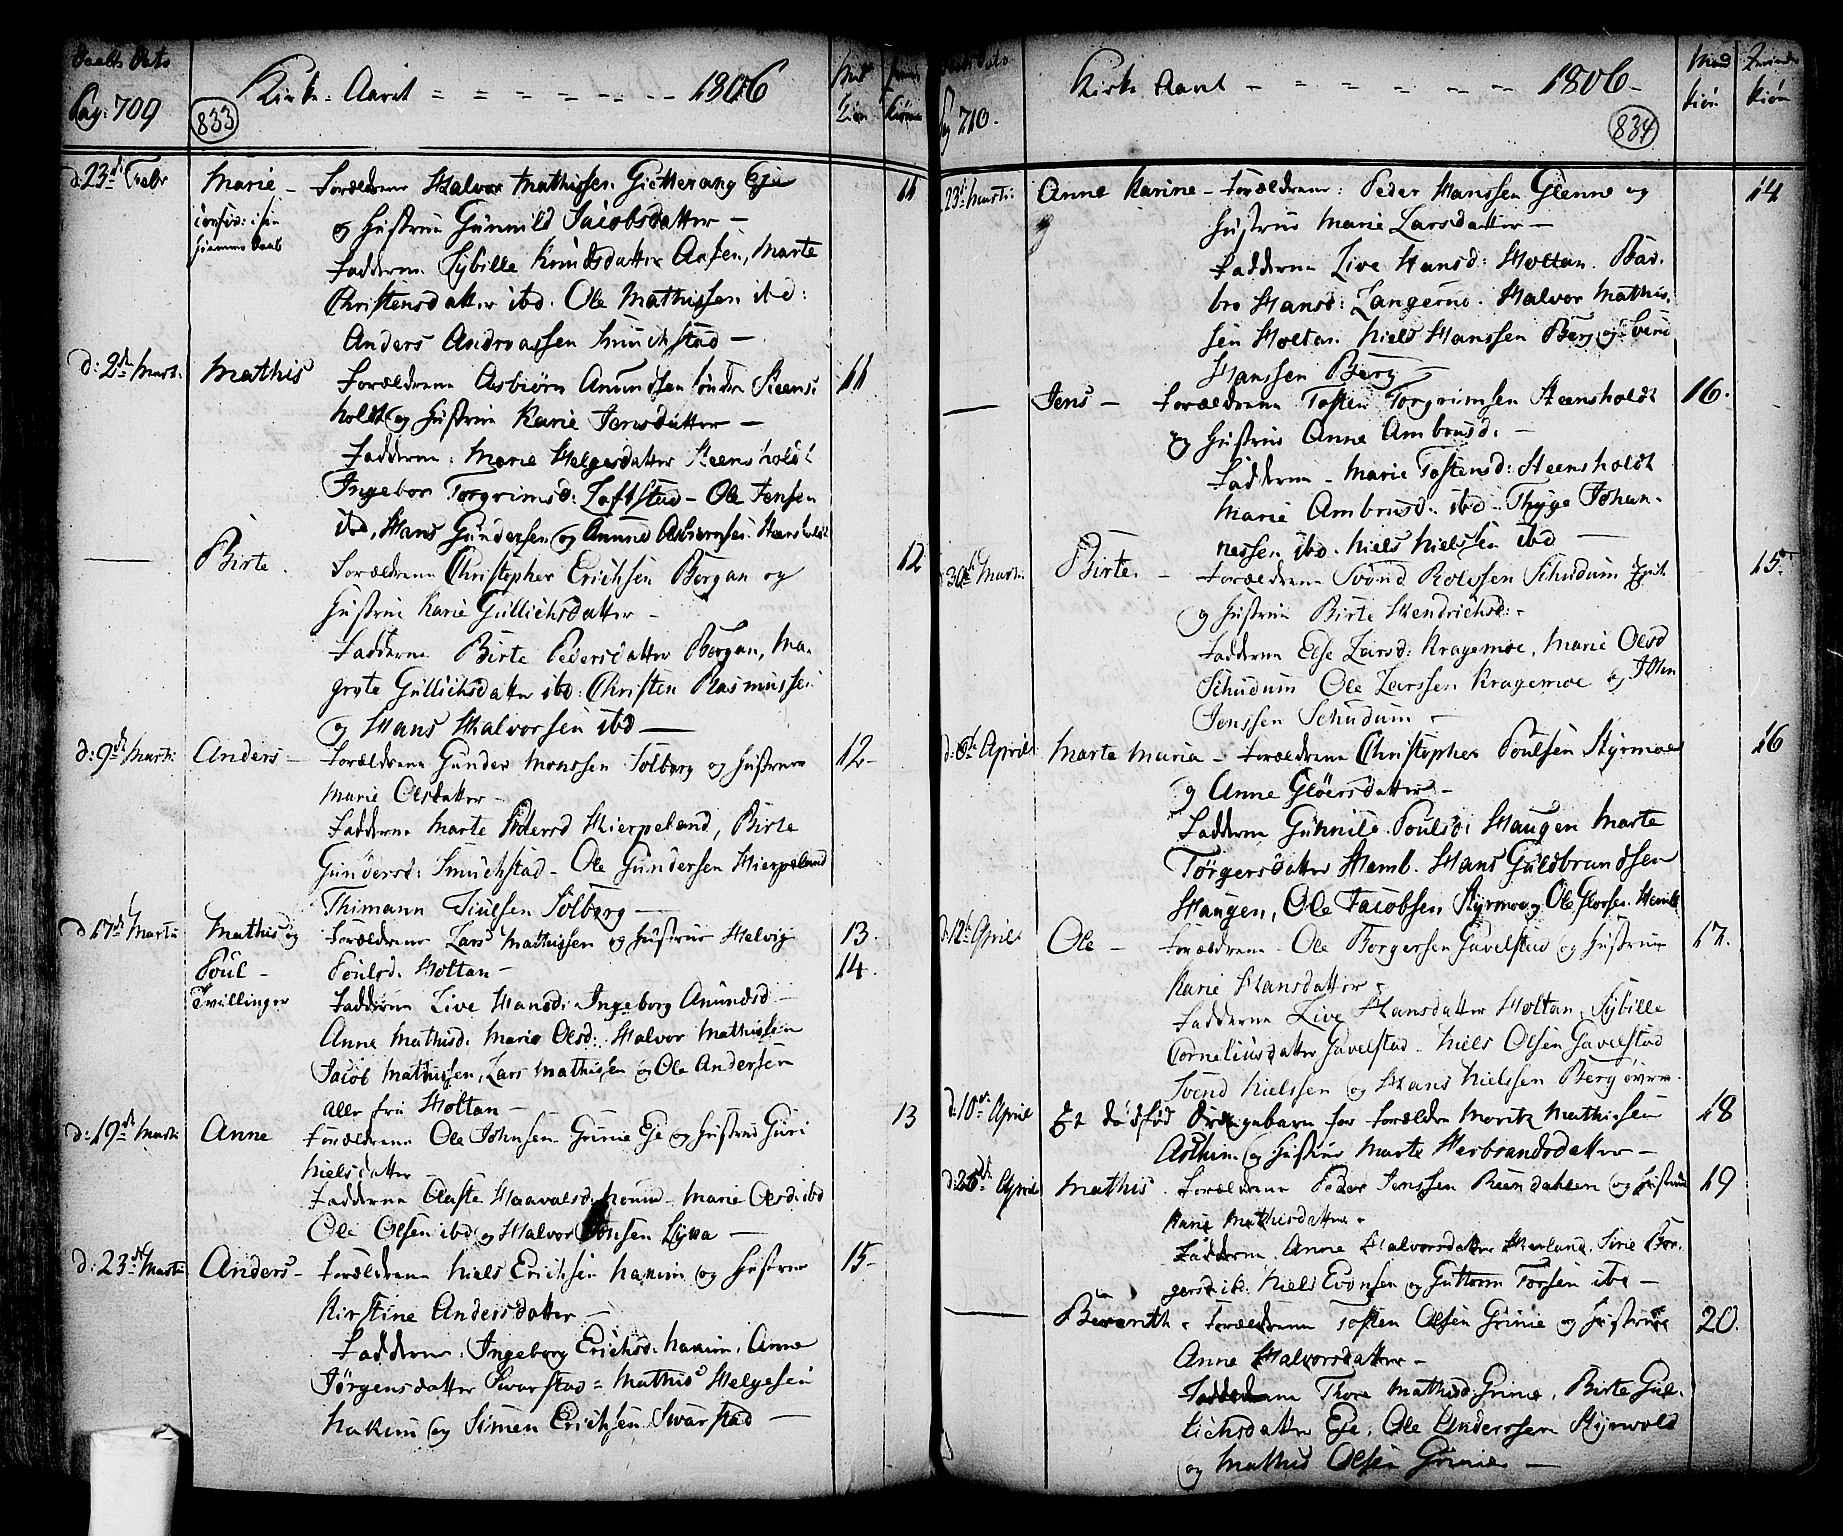 Daabs Dato
Pag: 709
833
Kirke-Aaret = = = = = - - 1806
Kiøn
Kiønn
d: 23de Febr
Marie - Forældrene Halvor Mathissen Gietterang Eje
og Hustrue Gunnild Jacobsdatter -
Fadderne Sybille Knudsdatter Aasen, Marte
Christensdatter ibd. Ole Mathissen ibd:
Anders Andreassen Smuchstad -
d: 2den Marti.
Mathis Forældrene Asbiørn Amundsen Søndre Steens-
holdt og Hustrue Karie Jensdatter -
Fadderne: Marie Helgesdatter Steensholdt
Ingebor Torgrimsd: Loftstad - Ole Jensen
ibd, Hans Gundersen og Amund Asbiørnsen Steensholdt
11
11
— Birte. Forældrene Christopher Erichsen Borgan og
Hustrue Karie Gullichsdatter -
Fadderne Birte Pedersdatter Borgan, Ma-
grete Gullichsdatter ibd: Christen Rasmussen
og Hans Halvorsen ibd —
12
d: 9de Marti:
Anders - Forældrene Gunder Monssen Solberg og Hustrue
Marie Olsdatter -
Fadderne Marte Pedersd Hierpeland, Birte
Gundersd: Smuchstad - Ole Gundersen Hierpeland
Thimann Juulsen Solberg —
12 -
d: 17de Martii
Mathis og Forældrene Lars Mathissen og Hustrue Helvig
Poul - Poulsd. Holtan -
Tvillinger Fadderne Live Hansd: Ingeborg Amundsd -
Anne Mathisd: Marie Olsd: Halvor Mathissen
Jacob Mathissen, Lars Mathissen og Ole Andersen
alle fra Holtan -
13.
14.
d: 19de Marti:
Anne Forældrene Ole Johnsen Grinie Eje og Hustrue Guri
Nielsdatter -
Fadderne Aaste Haavalsd: Marie Olsd: ibd
Ole Olsen ibd og Halvor Lyna -
13
d: 23de Marti
Anders - Forældrene Niels Erichsen Hakum og Hustrue
Kirstine Andersdatter -
Fadderne: Ingeborg Erichsd: Hakum, Anne
Jørgensdatter Svarstad = Mathis Helgesen
Hakum og Simen Erichsen Svarstad —
15 -
Pag 710.
Kirke Aaret - - - - - - 1806 -
834
Mand
Kiøn
Kiøn
23de Marti:
Anne Karine - Forældrene: Peder Hanssen Glenne og
Hustrue Marie Larsdatter -
Fadderne Live Hansd: Holtan. Bar-
bro Hansd: Langerud. Halvor Mathis-
sen Holtan. Niels Hanssen Berg og Svend
Hanssen Berg -
14
— Jens - Forældrene Tosten Torgrimsen Steensholdt
og Hustrue Anne Ambrusd. -
Fadderne - Marie Tostensd: Steensholdt
Marie Ambrusd. ibd - Thyge Johan-
nessen ibd. Niels Nielssen ibd —
16.
d: 30de Marti:
Birte. - Forældrene Svend Rolfssen Schudum
og Hustrue Birte Hendrichsd: -
Fadderne Else Larsd: Kragemoe, Marie Olsd
Schudum Ole Larssen Kragemoe og John
Jenssen Schudum. -
15.
d: 6de Aprili
Marte Maria - Forældrene Christopher Poulsen Styrmoe
og Anne Gløersdatter -
Fadderne Gunnild Poulsd: Haugen Marte
Torgersdatter Hemb. Hans Guldbrandsen
Haugen, Ole Jacobsen Styrmoe og Ole Gloersen
16
d. 12te Aprili
Ole - Forældrene - Ole Borgersen Gavelstad og Hustrue
Karie Hansdatter -
Fadderne Live Hansdatter Holtan, Sybille
Corneliusdatter Gavelstad - Niels Olsen Gavelstad
Svend Nielssen og Hans Nielssen Berg øvre.
17.
d: 10de Aprili
Et dødfød Drengebarn for Forældre Moritz Mathissen
Asthim og Hustrue Marte Herbrandsdatter -
18
d: 20de Aprili
Mathis. Forældrene Peder Jenssen Ruendahlen og Hustrue
Karie Mathisdatter -
Fadderne. Anne Halvorsdatter Sirie Bor-
gersd ibd: Niels Evensen og Guttorm Torsen ibd -
19
— Berenth. Forældrene Tosten Olsen Grinie og Hustrue
Anne Halvorsdatter -
Fadderne Thore Mathisd: Grinie, Birte Gul-
lichsdatter Eje, Ole Anderssen Styrvold
og Mathis Olsen Grinie -
20.